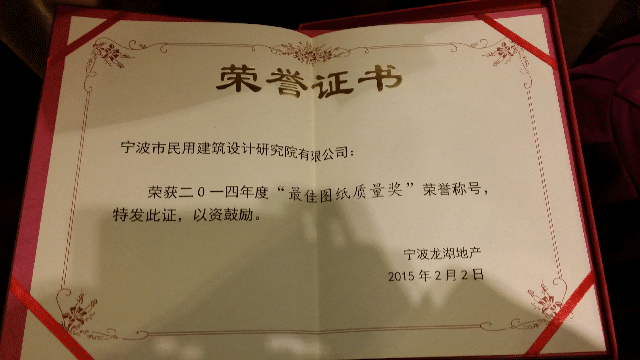 荣誉证书
宁波市民用建筑设计研究院有限公司：
荣获二0一四年度“最佳图纸质量奖”荣誉称号，
特发此证，以资鼓励。
宁波龙湖地产
2015年2月2日